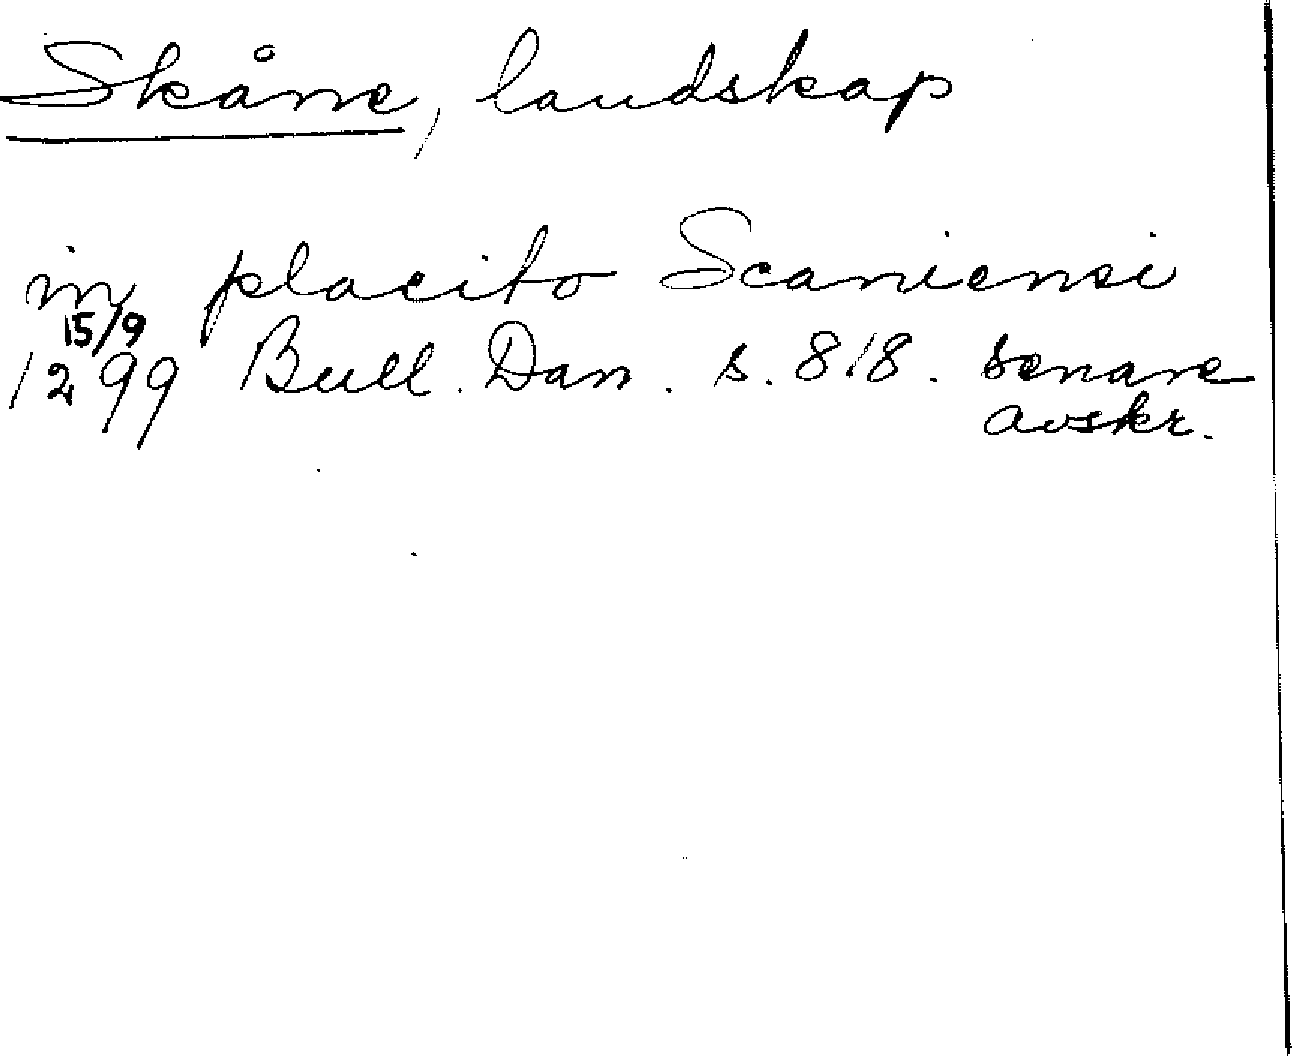 Skåne, landskap
in placito Scaniensi
15/9
1299 Bull. Dan. s. 818. senare
avskr.